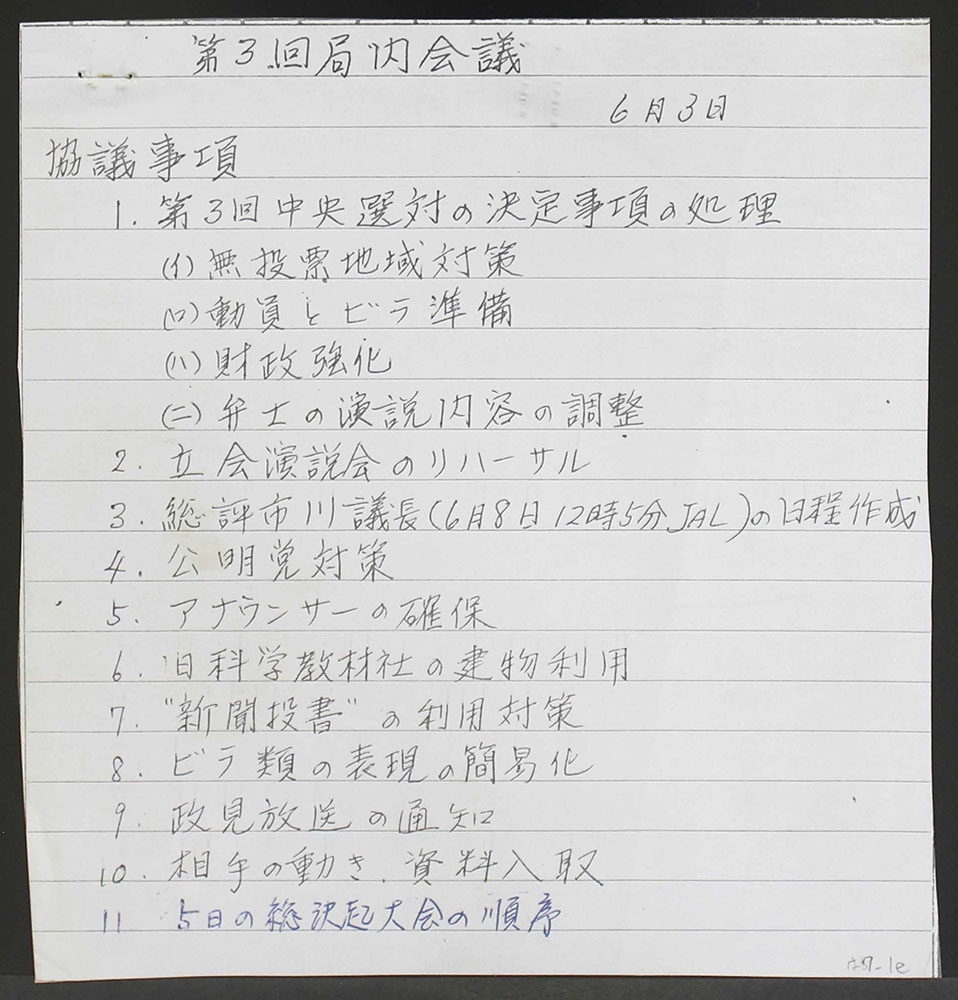 第3回局内会議
6月3日
協議事項
1. 第3回中央選対の決定事項の処理
(イ) 無投票地域対策
(ロ) 動員とビラ準備
(ハ) 財政強化
(ニ) 弁士の演説内容の調整
2. 立会演説会のリハーサル
3. 総評市川議長(6月8日12時5分JAL)の日程作成
4. 公明党対策
5. アナウンサーの確保
6. 旧科学教材社の建物利用
7. "新聞投書"の利用対策
8. ビラ類の表現の簡易化
9. 政見放送の通知
10. 相手の動き、資料入取
11 5日の総決起大会の順序